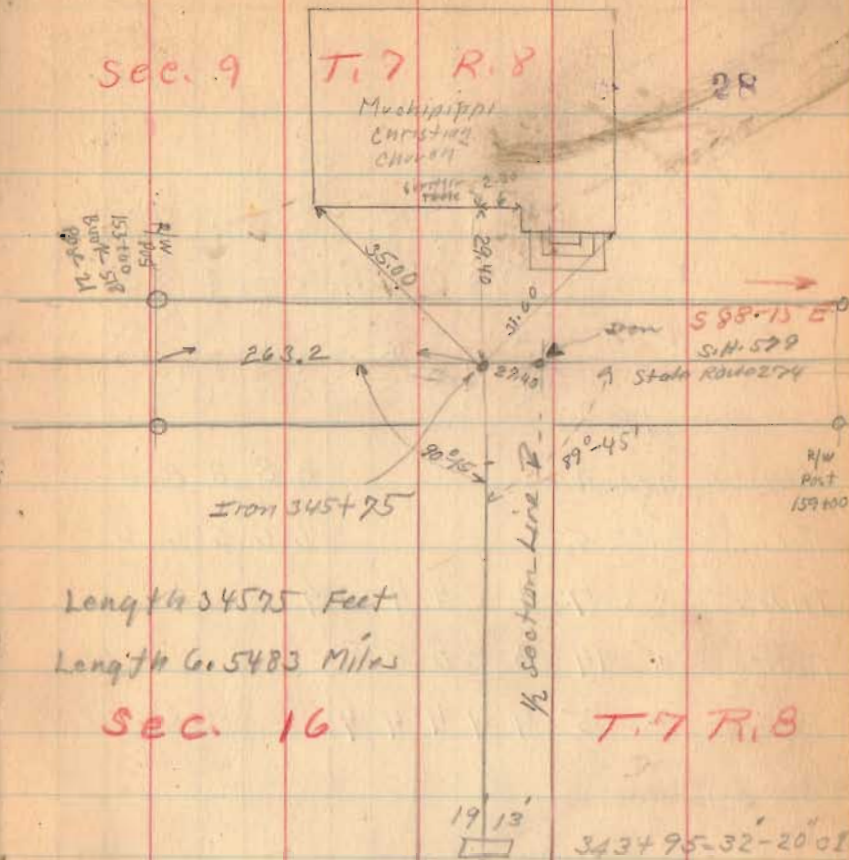 Sec. 9 T.7 R.8
28
Muchipippi
Christian
Church
2.30
29.40
35.00
31.60
R/W
Pos
153+00
815
Book
Page 12
S 88-15 E
Iron
S.H. 579
State Route 274
263.2
27.40
90°15'
89°-45'
R/W
Post
159+00
Iron 345+75
1/2 Section Line
Length 34575 Feet
Length 6.5483 Miles
Sec. 16 T.7 R.8
19' 13'
343+95=32'-20"